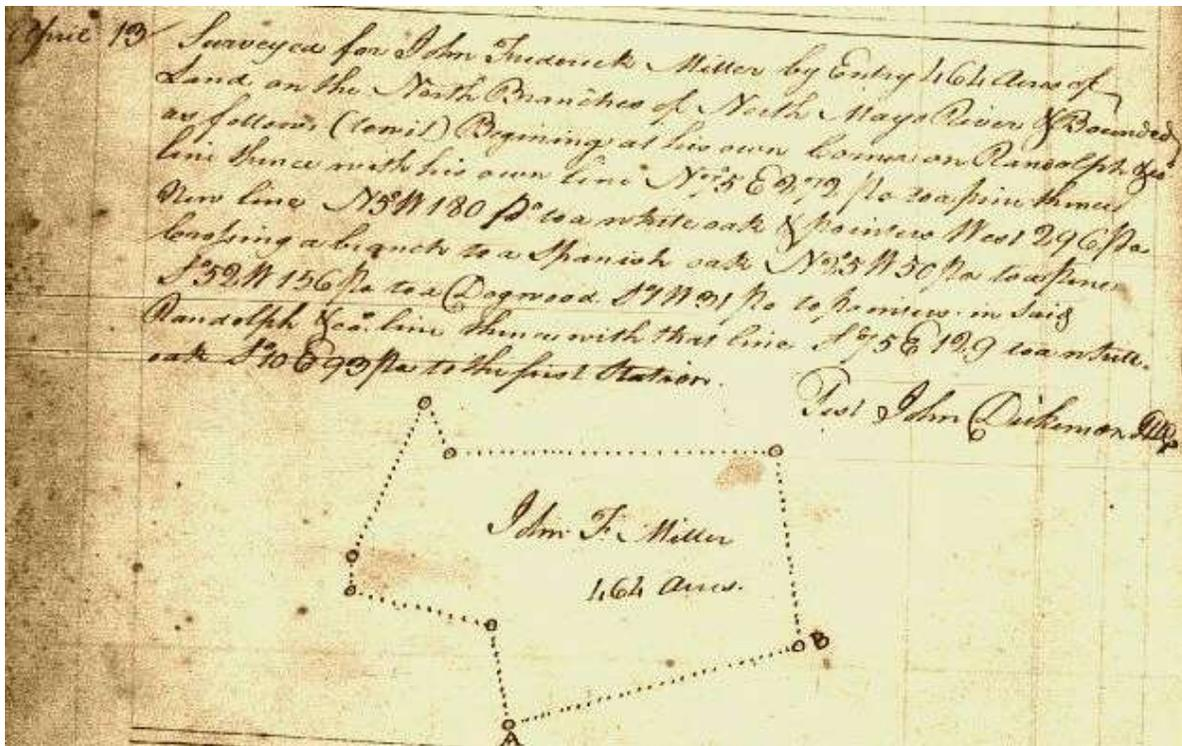 April 13 Surveyed for John Frederick Miller by Entry 464 Acres of
Land on the North Branches of North Mayo River & Bounded
as follows (towit) Begining at his own Corner on Randolph &co
line thence with his own line N75E 272 po to a pine thence
New line N5W 180 po to a white oak & pointers West 296 po
Crossing a branch to a Spanish oak N25W 50 po to a pine
S52W 156 po to a Dogwood S7W 31 po to pointers in said
Randolph &co line thence with that line S75E 129 to a white
oak S10E 93 po to the first Station.
Test John Dickenson
John F. Miller
464 Acres.
B
A